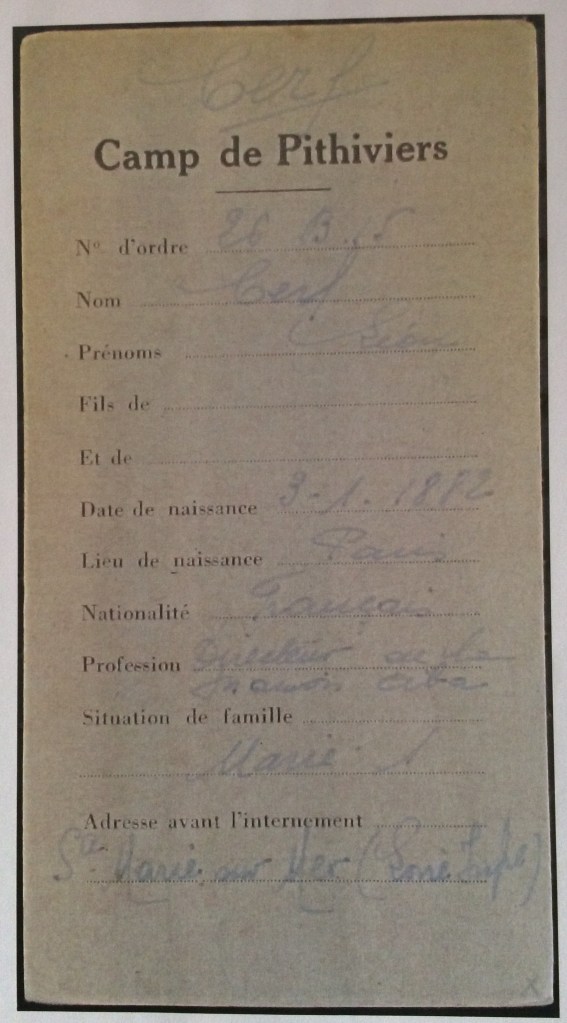 Cerf
Camp de Pithiviers
N° d'ordre 26 B. 15
Nom Cerf
Prénoms Léon
Fils de
Et de
Date de naissance 3-1.1882
Lieu de naissance Paris
Nationalité Français
Profession Directeur de la
maison Ciba
Situation de famille
Marié. 1
Adresse avant l'internement
Ste Marie sur Mer (Loire Infre)